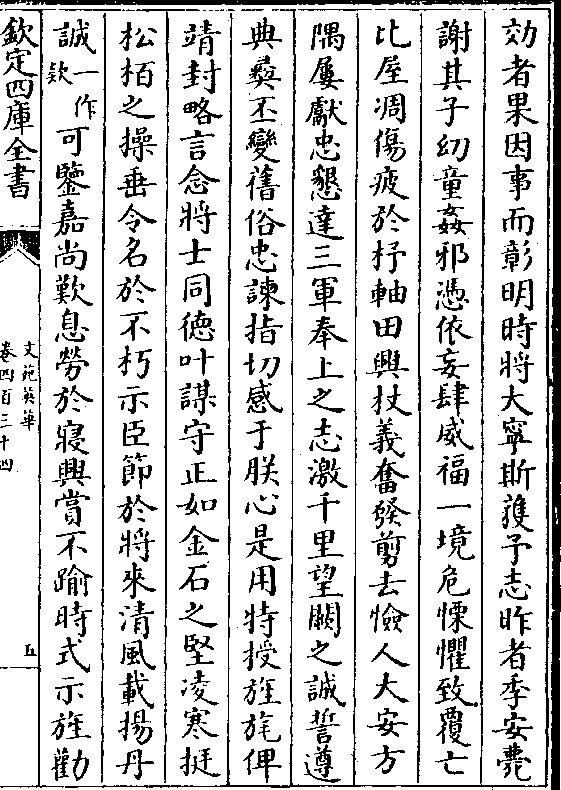 効者果因事而彰明時將大寧斯獲予志昨者季安薨
謝其子幻童姦邪憑依妄肆威福一境危慄懼致覆亡
比屋凋傷疲於杼軸田興杖義奮發剪去憸人大安方
隅屢獻忠懇達三軍奉上之志激千里望闕之誠誓遵
典彞丕變舊俗忠諫指切感于朕心是用特授旌旄俾
靖封略言念將士同德叶謀守正如金石之堅凌寒挺
松栢之操垂令名於不朽示臣節於將來清風載揚丹
誠一作欵可鑒嘉尚歎息勞於寢興賞不踰時式示旌勸
欽定四庫全書
文苑英華
卷四百三十四
五